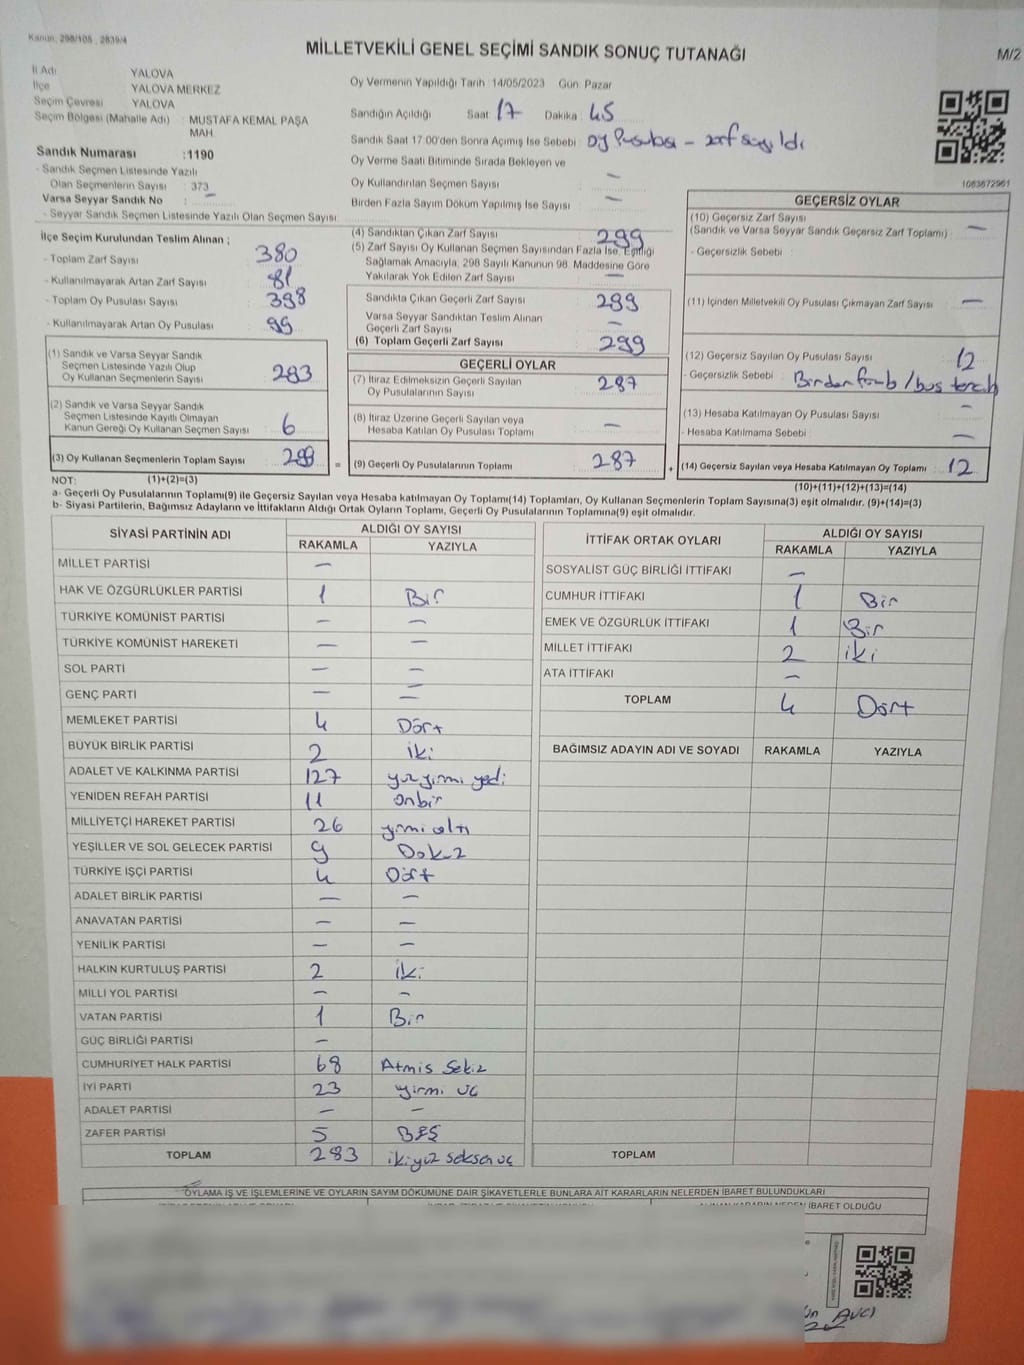 Kanun: 298/105 , 2839/4
MİLLETVEKİLİ GENEL SEÇİMİ SANDIK SONUÇ TUTANAĞI
M/2
İl Adı YALOVA
İlçe YALOVA MERKEZ
Seçim Çevresi YALOVA
Seçim Bölgesi (Mahalle Adı) : MUSTAFA KEMAL PAŞA MAH.
Sandık Numarası :1190
- Sandık Seçmen Listesinde Yazılı
Olan Seçmenlerin Sayısı : 373
Varsa Seyyar Sandık No : –
- Seyyar Sandık Seçmen Listesinde Yazılı Olan Seçmen Sayısı
Oy Vermenin Yapıldığı Tarih : 14/05/2023 Gün: Pazar
Sandığın Açıldığı Saat: 17 Dakika : 45
Sandık Saat 17:00'den Sonra Açımış İse Sebebi : oy Pusulası – zarf sayıldı
Oy Verme Saati Bitiminde Sırada Bekleyen ve
Oy Kullandırılan Seçmen Sayısı –
Birden Fazla Sayım Döküm Yapılmış İse Sayısı –
1083672961
İlçe Seçim Kurulundan Teslim Alınan ;
- Toplam Zarf Sayısı : 380
- Kullanılmayarak Artan Zarf Sayısı : 81
- Toplam Oy Pusulası Sayısı : 398
- Kullanılmayarak Artan Oy Pusulası : 99
(1) Sandık ve Varsa Seyyar Sandık
Seçmen Listesinde Yazılı Olup
Oy Kullanan Seçmenlerin Sayısı : 293
(2) Sandık ve Varsa Seyyar Sandık
Seçmen Listesinde Kayıtlı Olmayan
Kanun Gereği Oy Kullanan Seçmen Sayısı : 6
(3) Oy Kullanan Seçmenlerin Toplam Sayısı : 299
(1)+(2)=(3)
(4) Sandıktan Çıkan Zarf Sayısı 299
(5) Zarf Sayısı Oy Kullanan Seçmen Sayısından Fazla İse, Eşitliği
Sağlamak Amacıyla, 298 Sayılı Kanunun 98. Maddesine Göre
Yakılarak Yok Edilen Zarf Sayısı –
Sandıkta Çıkan Geçerli Zarf Sayısı : 299
Varsa Seyyar Sandıktan Teslim Alınan
Geçerli Zarf Sayısı –
(6) Toplam Geçerli Zarf Sayısı : 299
GEÇERLİ OYLAR
(7) İtiraz Edilmeksizin Geçerli Sayılan
Oy Pusulalarının Sayısı : 287
(8) İtiraz Üzerine Geçerli Sayılan veya
Hesaba Katılan Oy Pusulası Toplamı : –
= (9) Geçerli Oy Pusulalarının Toplamı : 287
GEÇERSİZ OYLAR
(10) Geçersiz Zarf Sayısı
(Sandık ve Varsa Seyyar Sandık Geçersiz Zarf Toplamı) : –
- Geçersizlik Sebebi :
(11) İçinden Milletvekili Oy Pusulası Çıkmayan Zarf Sayısı : –
(12) Geçersiz Sayılan Oy Pusulası Sayısı : 12
- Geçersizlik Sebebi : Birden /
(13) Hesaba Katılmayan Oy Pusulası Sayısı : –
- Hesaba Katılmama Sebebi : –
+ (14) Geçersiz Sayılan veya Hesaba Katılmayan Oy Toplamı : 12
(10)+(11)+(12)+(13)=(14)
NOT:
a- Geçerli Oy Pusulalarının Toplamı(9) ile Geçersiz Sayılan veya Hesaba katılmayan Oy Toplamı(14) Toplamları, Oy Kullanan Seçmenlerin Toplam Sayısına(3) eşit olmalıdır. (9)+(14)=(3)
b- Siyasi Partilerin, Bağımsız Adayların ve İttifakların Aldığı Ortak Oyların Toplamı, Geçerli Oy Pusulalarının Toplamına(9) eşit olmalıdır.
SİYASİ PARTİNİN ADI ALDIĞI OY SAYISI
RAKAMLA YAZIYLA
MİLLET PARTİSİ –
HAK VE ÖZGÜRLÜKLER PARTİSİ 1 Bir
TÜRKİYE KOMÜNİST PARTİSİ – –
TÜRKİYE KOMÜNİST HAREKETİ – –
SOL PARTİ – –
GENÇ PARTİ – –
MEMLEKET PARTİSİ 4 Dört
BÜYÜK BİRLİK PARTİSİ 2 iki
ADALET VE KALKINMA PARTİSİ 127 yüz yirmi yedi
YENİDEN REFAH PARTİSİ 11 onbir
MİLLİYETÇİ HAREKET PARTİSİ 26 yirmi altı
YEŞİLLER VE SOL GELECEK PARTİSİ 9 Dokuz
TÜRKİYE İŞÇİ PARTİSİ 4 Dört
ADALET BİRLİK PARTİSİ – –
ANAVATAN PARTİSİ – –
YENİLİK PARTİSİ – –
HALKIN KURTULUŞ PARTİSİ 2 iki
MİLLİ YOL PARTİSİ – –
VATAN PARTİSİ 1 Bir
GÜÇ BİRLİĞİ PARTİSİ –
CUMHURİYET HALK PARTİSİ 68 Atmis Sekiz
İYİ PARTİ 23 yirmi üç
ADALET PARTİSİ – –
ZAFER PARTİSİ 5 BEŞ
TOPLAM 283 ikiyüz seksen üç
İTTİFAK ORTAK OYLARI ALDIĞI OY SAYISI
RAKAMLA YAZIYLA
SOSYALİST GÜÇ BİRLİĞİ İTTİFAKI –
CUMHUR İTTİFAKI 1 Bir
EMEK VE ÖZGÜRLÜK İTTİFAKI 1 Bir
MİLLET İTTİFAKI 2 iki
ATA İTTİFAKI –
TOPLAM 4 Dört
BAĞIMSIZ ADAYIN ADI VE SOYADI RAKAMLA YAZIYLA
TOPLAM
OYLAMA İŞ VE İŞLEMLERİNE VE OYLARIN SAYIM DÖKÜMÜNE DAİR ŞİKAYETLERLE BUNLARA AİT KARARLARIN NELERDEN İBARET BULUNDUKLARI
İBARET OLDUĞU
AVCI